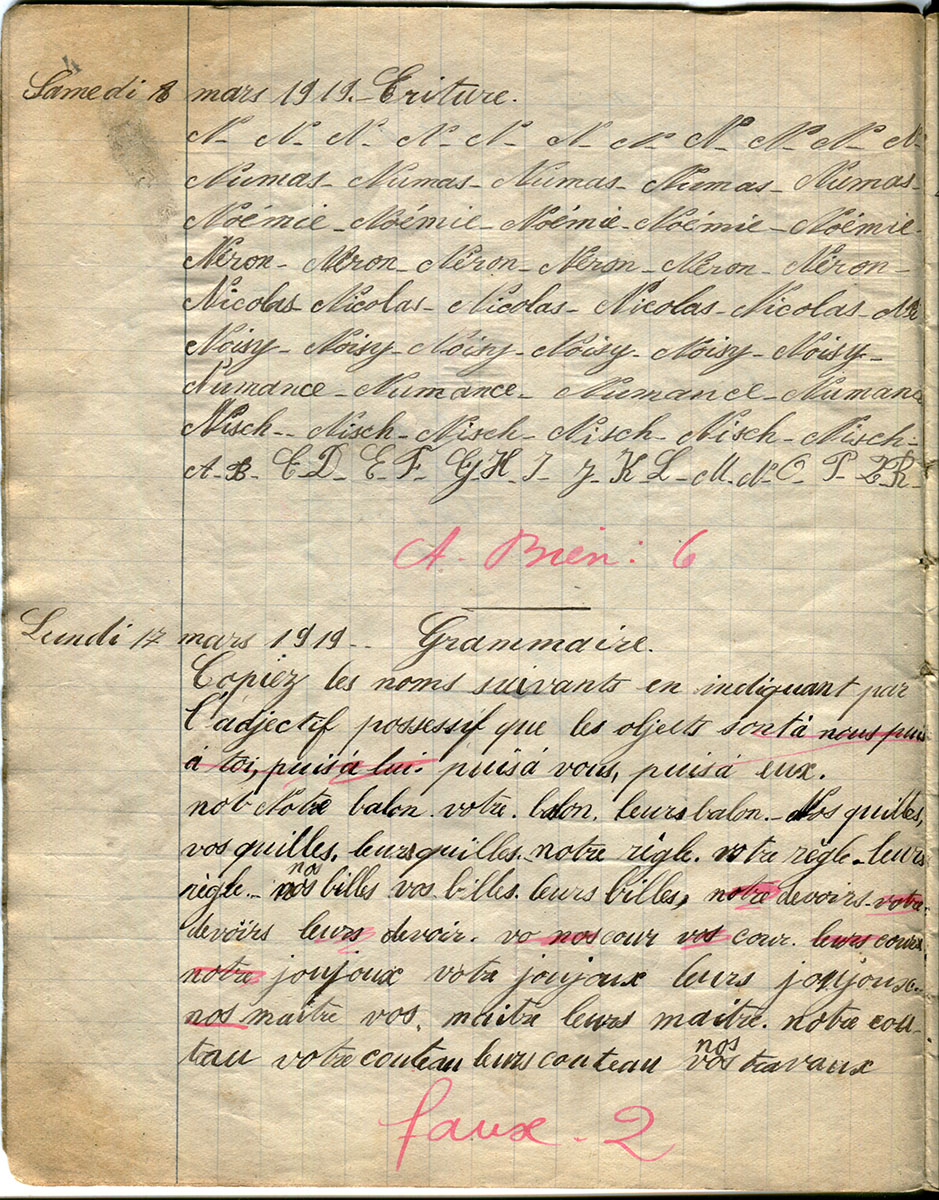 Samedi 8 mars 1919. Ecriture.
N- N- N- N- N- N- N- N- N- N- N-
Numas- Numas- Numas- Numas- Numas-
Noémie- Noémie- Noémie- Noémie- Noémie-
Néron- Néron- Néron- Néron- Néron- Néron-
Nicolas- Nicolas- Nicolas- Nicolas- Nicolas-
Noisy- Noisy- Noisy- Noisy- Noisy- Noisy-
Numance- Numance- Numance- Numanc
Nisch-- Nisch- Nisch- Nisch- Nisch- Nisch-
A-B- C-D- E-F- G-H-I- J-K-L- M-N-O- P- Q-R-
A. Bien: 6
Lundi 17 mars 1919-- Grammaire.
Copiez les noms suivants en indiquant par
l'adjectif possessif que les objects sont à nous puis
à toi, puis à lui. puis à vous, puis à eux.
nob Notre balon. votre balon. leurs balon.- Nos quilles,
vos quilles, leurs quilles.- notre règle. votre règle- leurs
règle.- nos billes vos billes. leurs billes, notre devoirs-votre
devoirs leurs devoir. vo nos cour vos cour. leurs cours
notre joujoux votre joujoux leurs joujoux-
nos maître vos, maitre leurs maître. notre cou-
teau votre couteau leurs couteau nos vos travaux
faux - 2